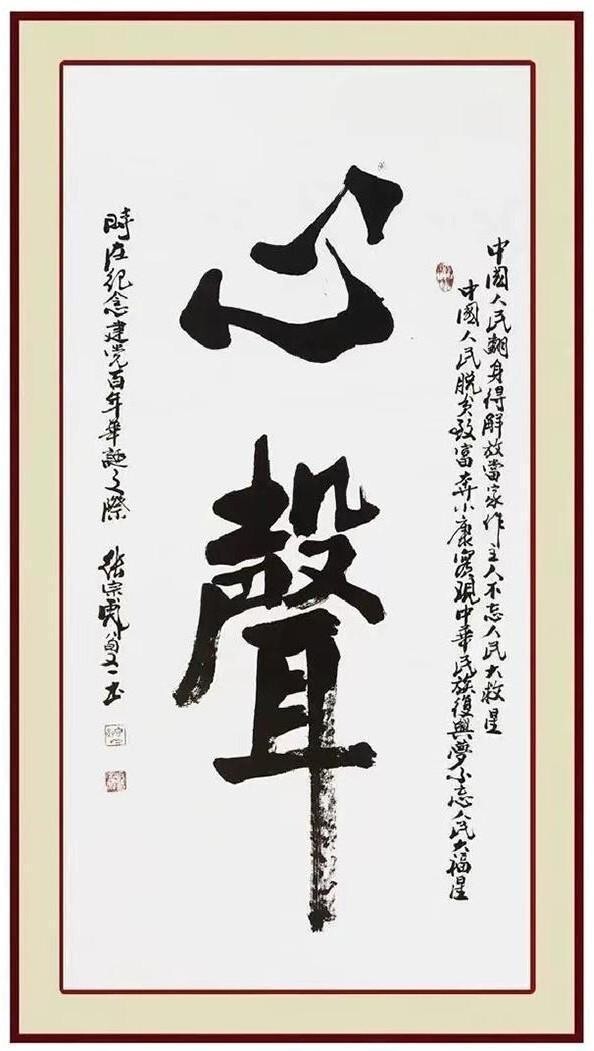 中國人民翻身得解放當家作主人不忘人民大救星
中國人民脫貧致富奔小康實現中華民族復興夢不忘人民大福星
心聲
時在紀念建党百年華誕之際 張宗 書